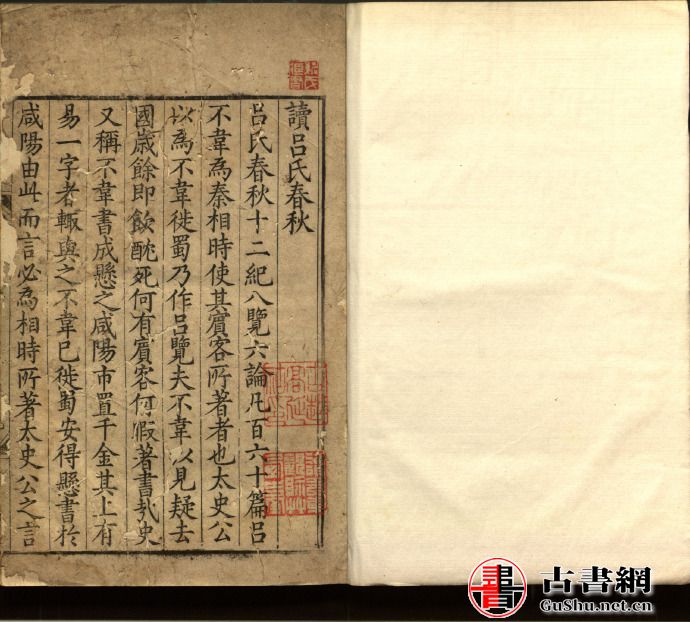 讀吕氏春秋
吕氏春秋十二紀八覽六論凡百六十篇吕
不韋為秦相時使其賓客所著者也太史公
以為不韋徙蜀乃作吕覽夫不韋以見疑去
國歲餘即飲酖死何有賓客何假著書㢤史
又稱不韋書成懸之咸陽市置千金其上有
易一字者輙與之不韋已徙蜀安得懸書於
咸陽由此而言必為相時所著太史公之言
書
古書網
GuShu.net.cn